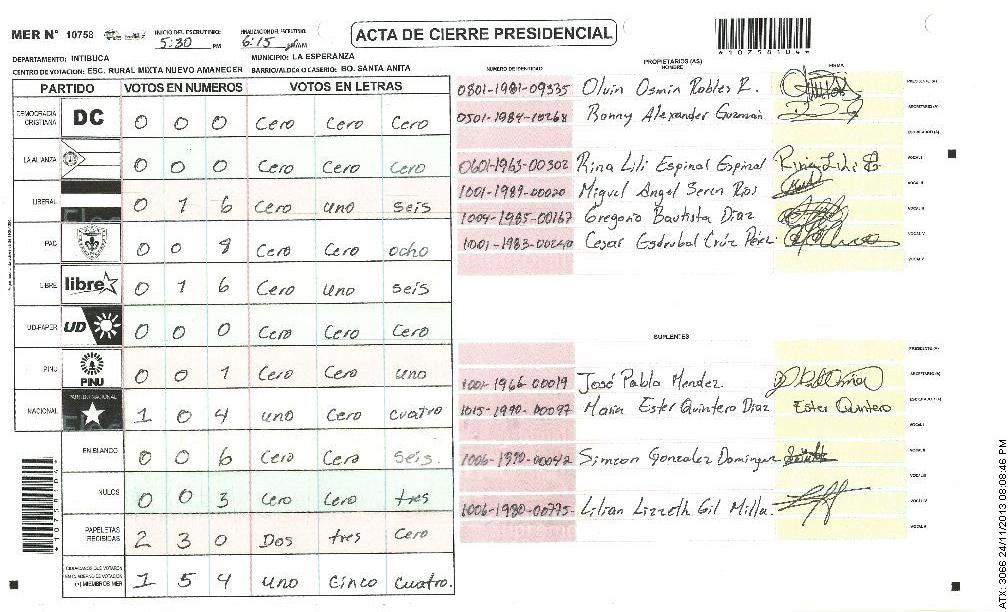 MER N° 10758
INICIO DEL ESCRUTINIO: 5:30 PM
FINALIZACION DEL ESCRUTINIO: 6:15
ACTA DE CIERRE PRESIDENCIAL
*10758104*
DEPARTAMENTO: INTIBUCA MUNICIPIO: LA ESPERANZA
CENTRO DE VOTACION: ESC. RURAL MIXTA NUEVO AMANECER BARRIO/ALDEA O CASERIO: BO. SANTA ANITA
PARTIDO VOTOS EN NUMEROS VOTOS EN LETRAS
DEMOCRACIA CRISTIANA DC 0 0 0 Cero Cero Cero
LA ALIANZA 0 0 0 Cero Cero Cero
LIBERAL 0 1 6 Cero uno seis
PAC 0 0 8 Cero Cero ocho
LIBRE libre 0 1 6 Cero uno seis
UD-FAPER UD 0 0 0 Cero Cero Cero
PINU PINU 0 0 1 Cero Cero uno
NACIONAL PARTIDO NACIONAL 1 0 4 uno Cero cuatro
EN BLANCO 0 0 6 Cero Cero seis.
NULOS 0 0 3 Cero Cero tres
PAPELETAS RECIBIDAS 2 3 0 Dos tres Cero
CIUDADANOS QUE VOTARON EN CUADERNO DE VOTACION (+) MIEMBROS MER 1 5 4 uno Cinco cuatro.
PROPIETARIOS (AS)
NUMERO DE IDENTIDAD NOMBRE FIRMA
0801-1981-09335 Olvin Osmin Robles R. PRESIDENTE (A)
0501-1984-10268 Ronny Alexander Guzman SECRETARIO (A)
ESCRUTADOR (A)
0601-1963-00302 Rina Lili Espinal Espinal Rina Lili E VOCAL I
1001-1989-00020 Miguel Angel Seren Rios VOCAL II
1004-1985-00167 Gregorio Bautista Diaz VOCAL III
1001-1983-00240 Cesar Esdrubal Crúz Pérez. VOCAL IV
VOCAL V
SUPLENTES
PRESIDENTE (A)
1001-1966-00019 José Pablo Mendez SECRETARIO (A)
1015-1990-00097 Maria Ester Quintero Diaz Ester Quintero ESCRUTADOR (A)
VOCAL I
1006-1990-00042 Simeon Gonzalez Dominguez VOCAL II
VOCAL III
1006-1980-00775 Lilian Lizzeth Gil Milla. VOCAL IV
VOCAL V
ATX: 3066 24/11/2013 08:08:46 PM